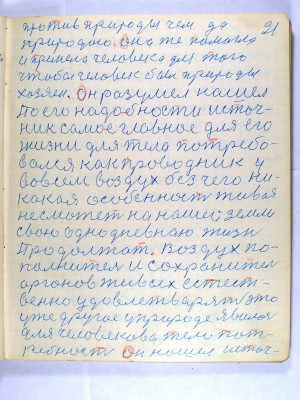 21
против природы чем да
природою. Она же помогла
и привела человека для того
чтобы человек был природы
хозяен. Он разумел нашел
по его надобности источ-
ник самое главное для его
жизни для тела потребо-
вался как проводник у
во всем воздух без чего ни-
какая особенность живая
не сможет на нашей земли
свою однодневнаю жизн
продолжат. Воздух по-
полнител и сохранител
органов жив всех естест-
венно удовлетварят это
уже другое у природе явился
для человекова тело пот-
ребность Он нашел источ-